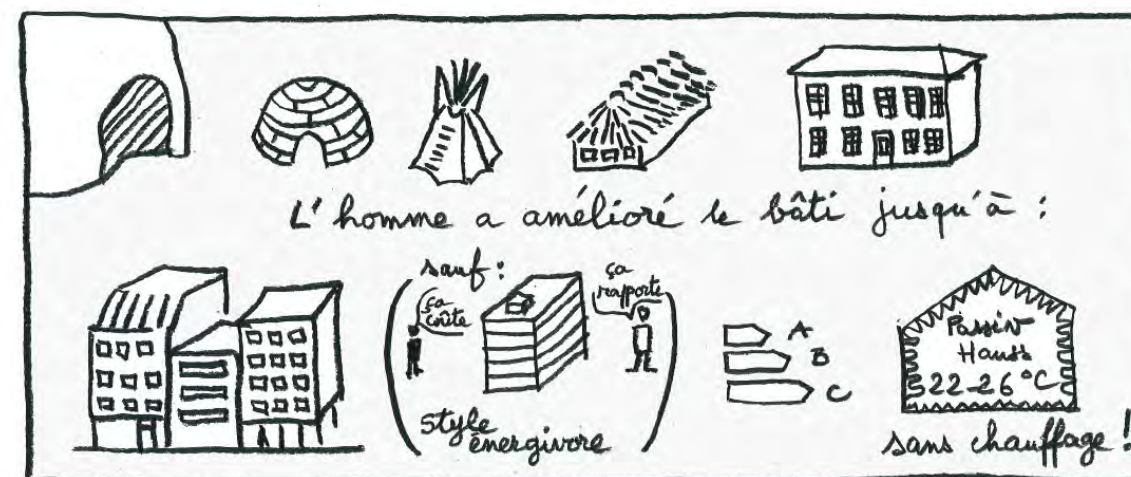 L'homme a amélioré le bâti jusqu'à :
sauf :
ça
coûte
ça
rapporte
style
énergivore
A
B
C
Passiv
Hauss
22-26°C
sans chauffage !